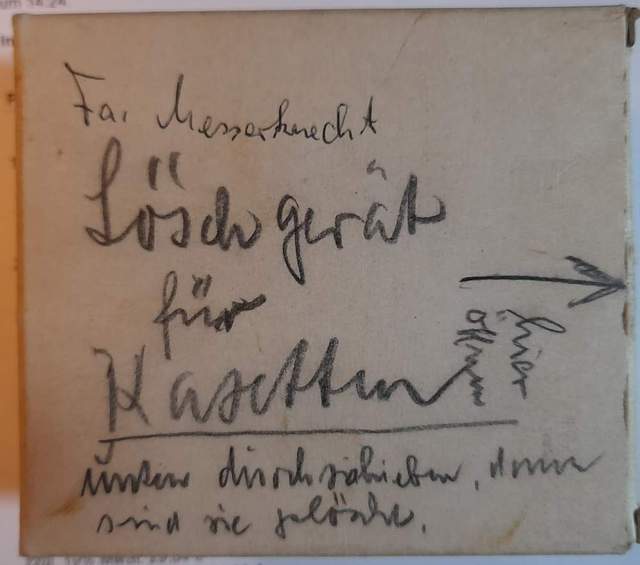 Fa. Messerknecht
Löschgerät
für
Kasetten
hier
öffnen
unten durchschieben, dann
sind sie gelöscht.